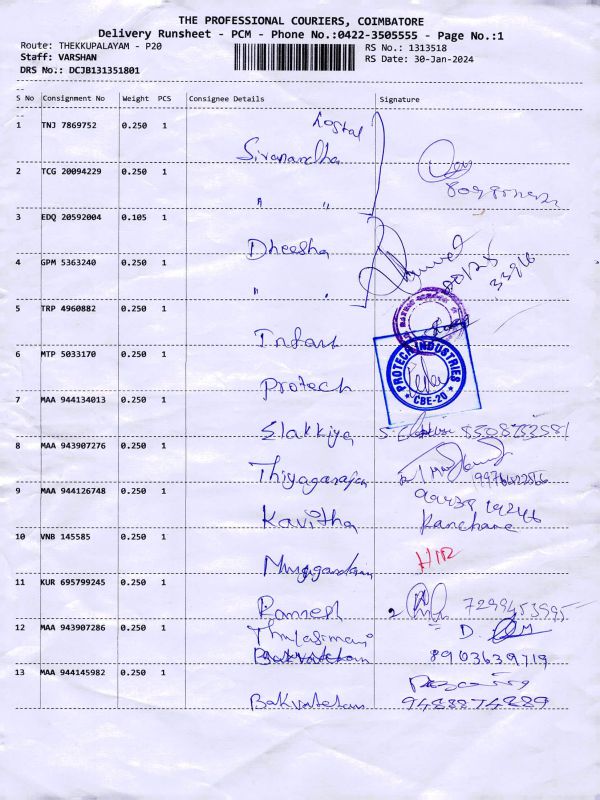 THE PROFESSIONAL COURIERS, COIMBATORE
Delivery Runsheet - PCM - Phone No.:0422-3505555 - Page No.:1
Route: THEKKUPALAYAM - P20
RS No.: 1313518
Staff: VARSHAN
RS Date: 30-Jan-2024
DRS No.: DCJB131351801
S No Consignment No Weight PCS Consignee Details Signature
1 TNJ 7869752 0.250 1
Sivanandha
2 TCG 20094229 0.250 1
" "
3 EDQ 20592004 0.105 1
Dheesha
4 GPM 5363240 0.250 1
" "
33916
5 TRP 4960882 0.250 1
Infant
6 MTP 5033170 0.250 1
Protech
PROTECH INDUSTRIES
CBE-20
7 MAA 944134013 0.250 1
Elakkiya
8 MAA 943907276 0.250 1
Thiyagarajan
9 MAA 944126748 0.250 1
99438 19246
Kavitha Kanchana
10 VNB 145585 0.250 1
11 KUR 695799245 0.250 1
Ramesh 7299453995
12 MAA 943907286 0.250 1
Thulasimani
8903639719
13 MAA 944145982 0.250 1
9488874889